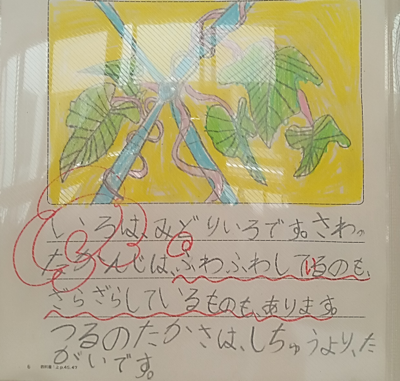 いろは、みどりいろです。さわっ
たかんじは、ふわふわしているのも、
ざらざらしているものも、あります。
つるのたかさは、しちゅうより、た
かいです。